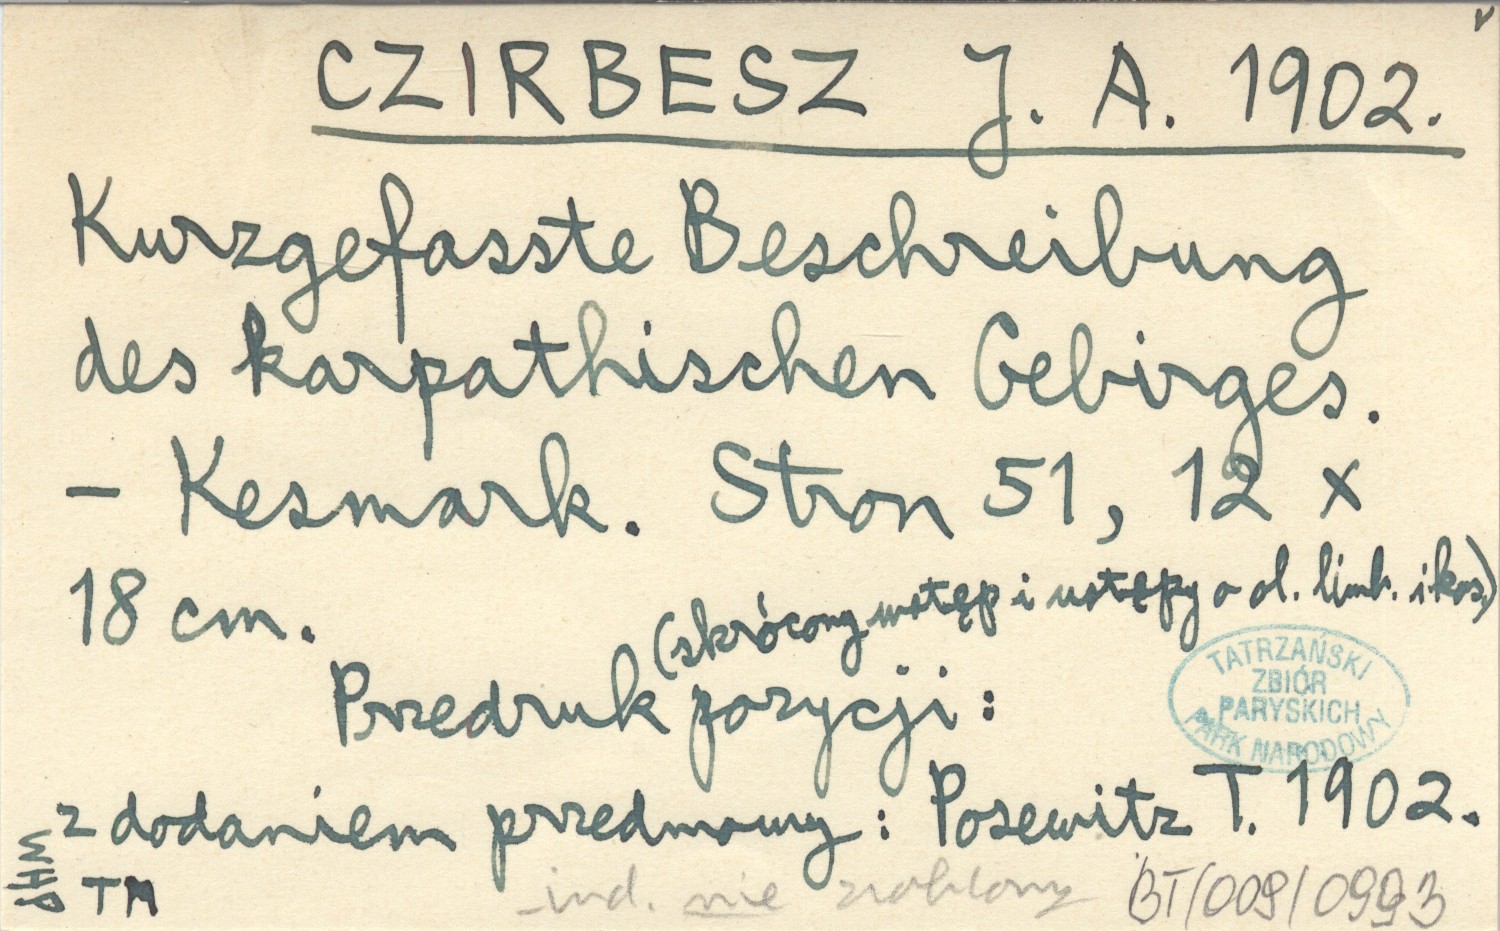 CZIRBESZ J. A. 1902.
Kurzgefasste Beschreibung
des karpathischen Gebirges.
– Kesmark. Stron 51, 12 x
18 cm.
(skrócony wstęp i ustępy o ol. limb. i kos.)
Przedruk pozycji:
TATRZAŃSKI
ZBIÓR
PARYSKICH
PARK NARODOWY
z dodaniem przedmowy: Posewitz T. 1902.
WHP
TM
ind. nie zrobiony
BT/009/0993